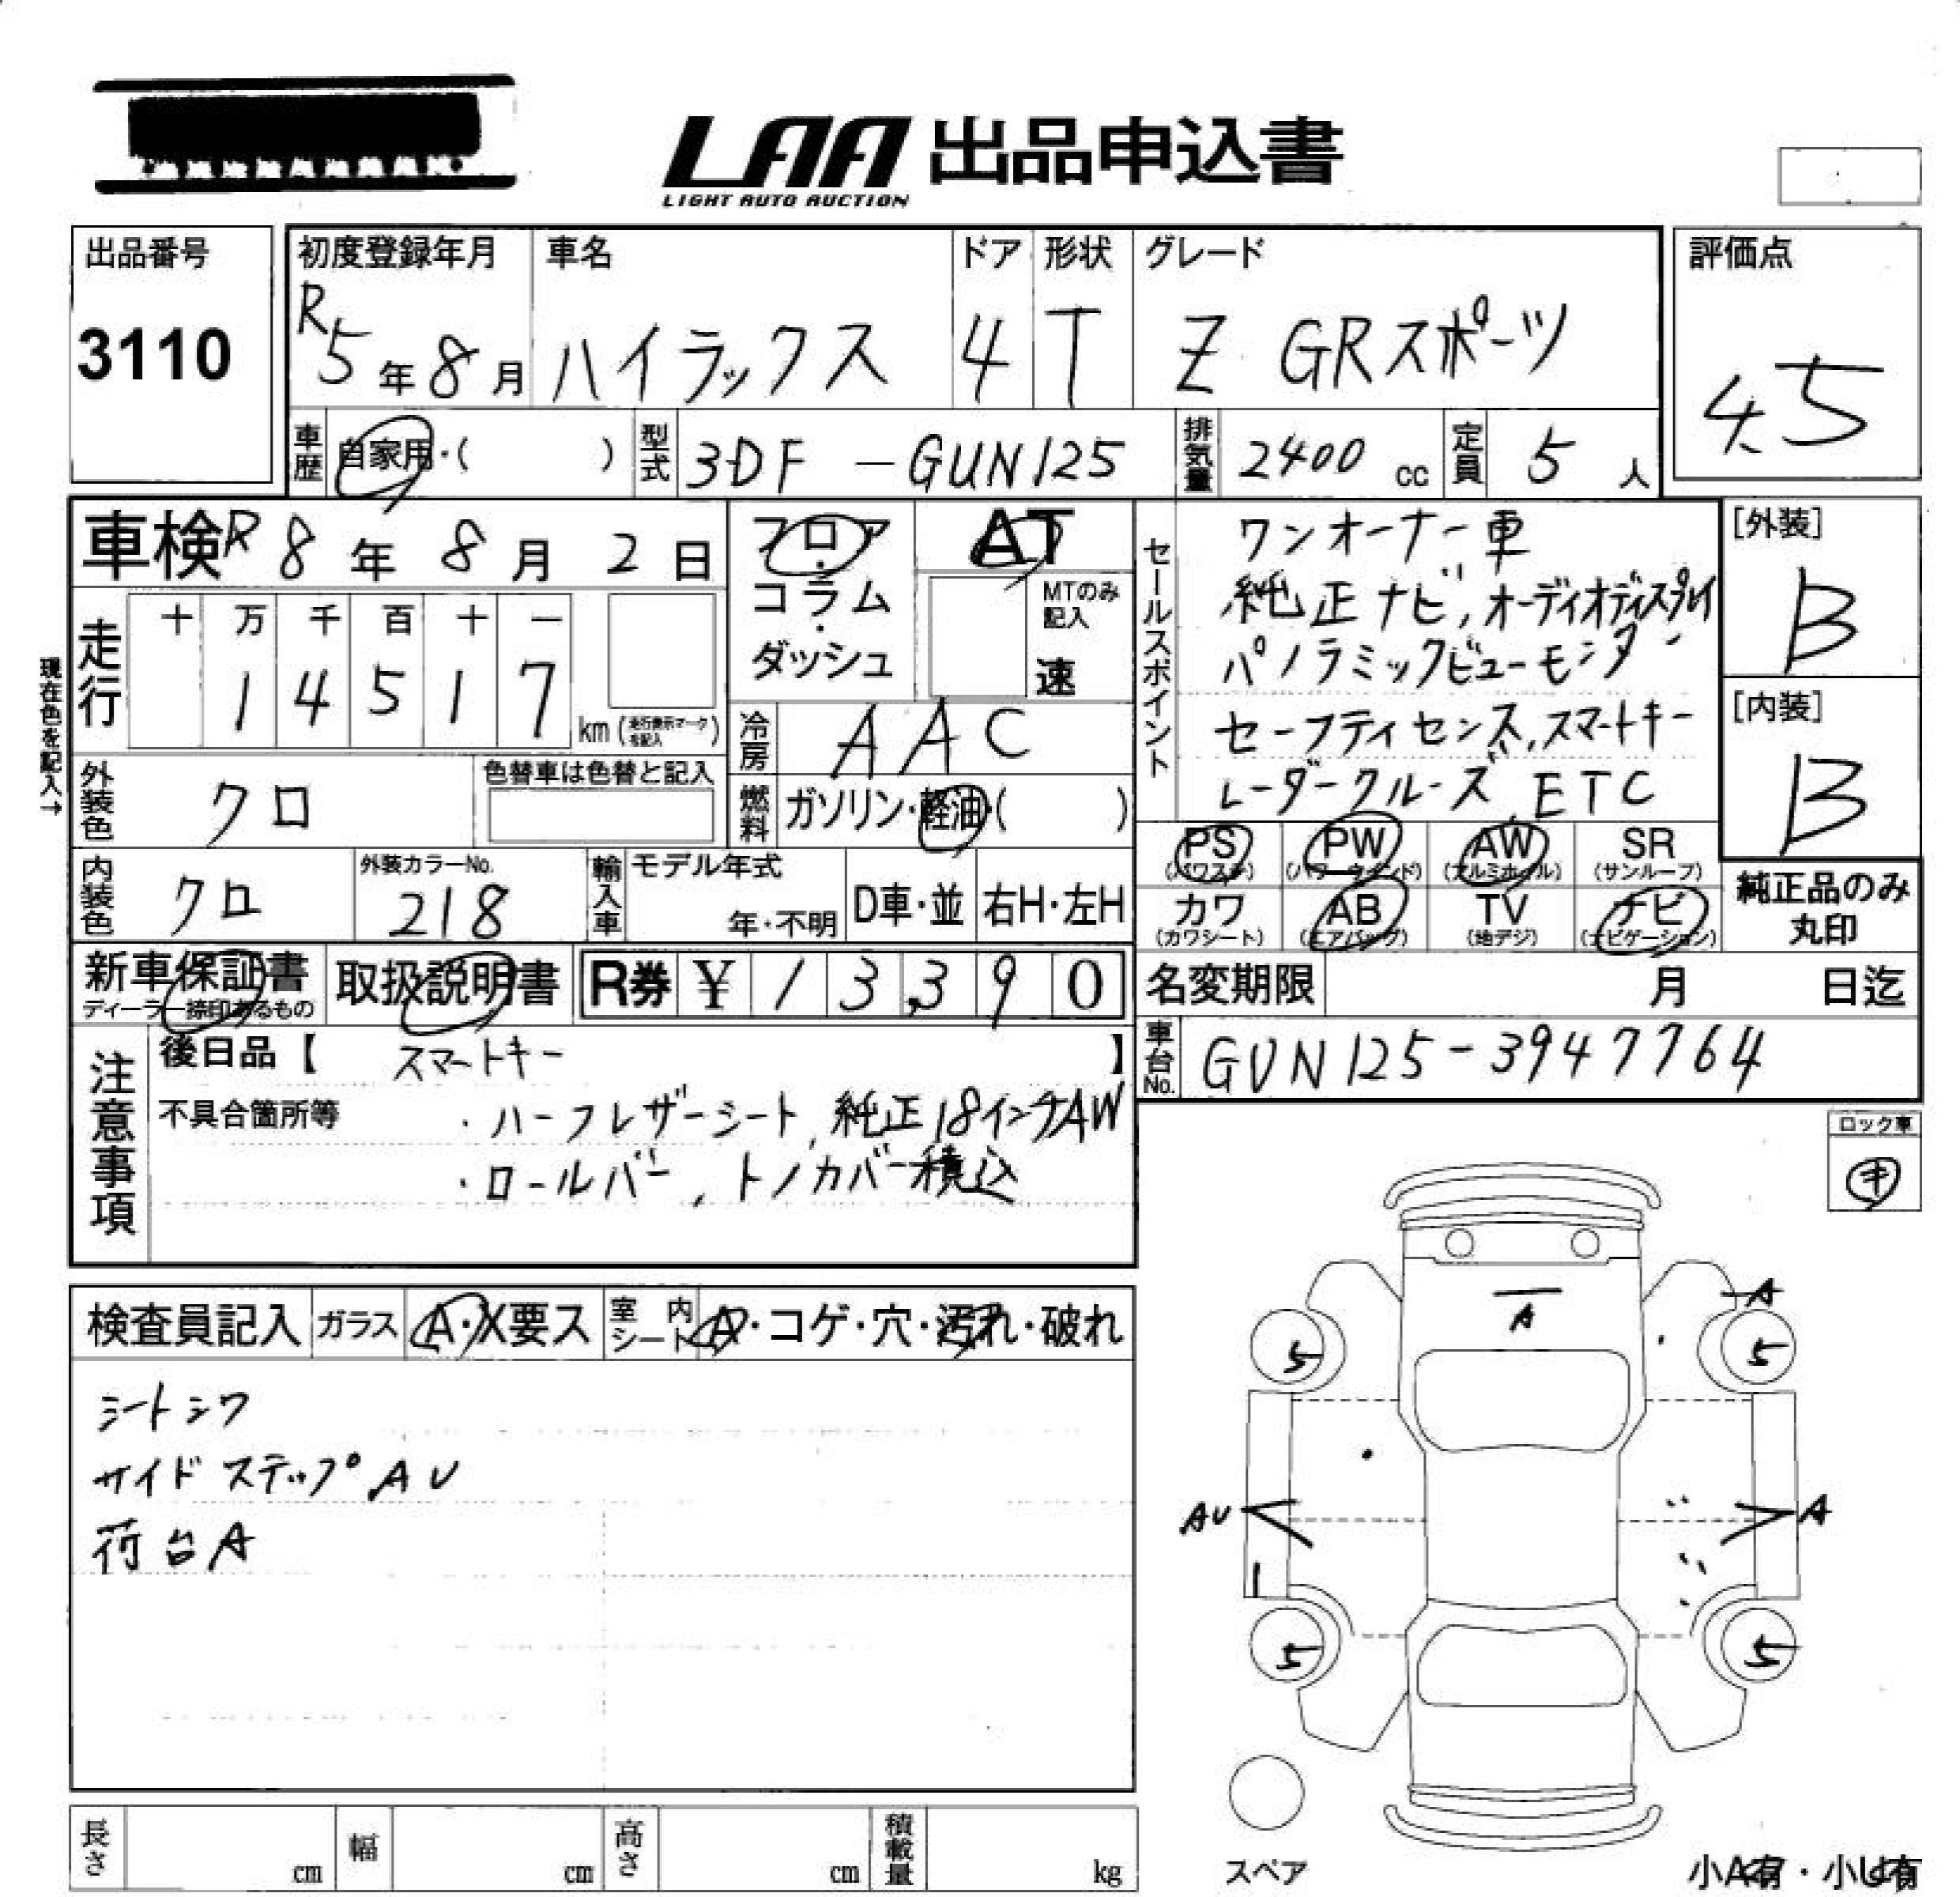 LAA 出品申込書
LIGHT AUTO AUCTION
出品番号
3110
初度登録年月
R5年8月
車名
ハイラックス
ドア
4
形状
T
グレード
Z GRスポーツ
評価点
4.5
車歴
自家用・( )
型式
3DF-GUN125
排気量
2400 cc
定員
5 人
車検 R8年8月2日
フロア・コラム・ダッシュ
AT
MTのみ記入
速
現在色を記入→
走行
十 万 千 百 十 一
1 4 5 1 7
km (走行表示マークを記入)
冷房
AAC
外装色
クロ
色替車は色替と記入
燃料
ガソリン・軽油・( )
内装色
クロ
外装カラーNo.
218
輸入車
モデル年式
年・不明
D車・並
右H・左H
セールスポイント
ワンオーナー車
純正ナビ,オーディオディスプレイ
パノラミックビューモニター
セーフティセンス,スマートキー
レーダークルーズ,ETC
[外装]
B
[内装]
B
PS
(パワステ)
PW
(パワーウインド)
AW
(アルミホイル)
SR
(サンルーフ)
カワ
(カワシート)
AB
(エアバッグ)
TV
(地デジ)
ナビ
(ナビゲーション)
純正品のみ
丸印
新車保証書
ディーラー捺印あるもの
取扱説明書
R券 ¥ 13,390
名変期限 月 日迄
車台No.
GUN125-3947764
注意事項
後日品【 スマートキー 】
不具合箇所等
・ハーフレザーシート,純正18インチAW
・ロールバー,トノカバー積込
ロック車
キ
検査員記入
ガラス
A・X要ス
室内シート
A・コゲ・穴・汚れ・破れ
シートシワ
サイドステップAU
荷台A
A
A
5
5
AU
A
5
5
スペア
長さ cm
幅 cm
高さ cm
積載量 kg
小A有・小U有